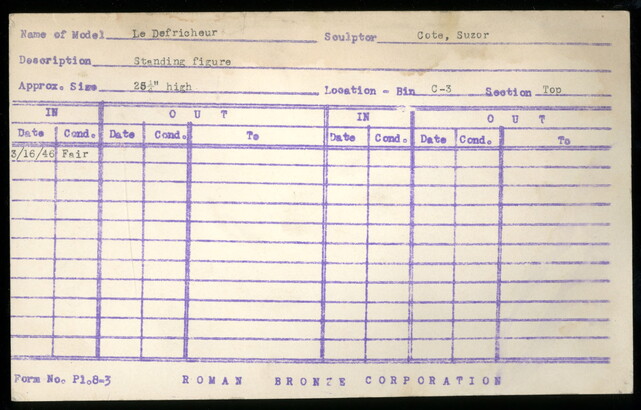 Name of Model Le Defricheur Sculptor Cote, Suzor
Description Standing figure
Approx. Size 25½" high Location - Bin C-3 Section Top
IN OUT IN OUT
Date Cond. Date Cond. To Date Cond. Date Cond. To
3/16/46 Fair
Form No. P1.8-3 ROMAN BRONZE CORPORATION